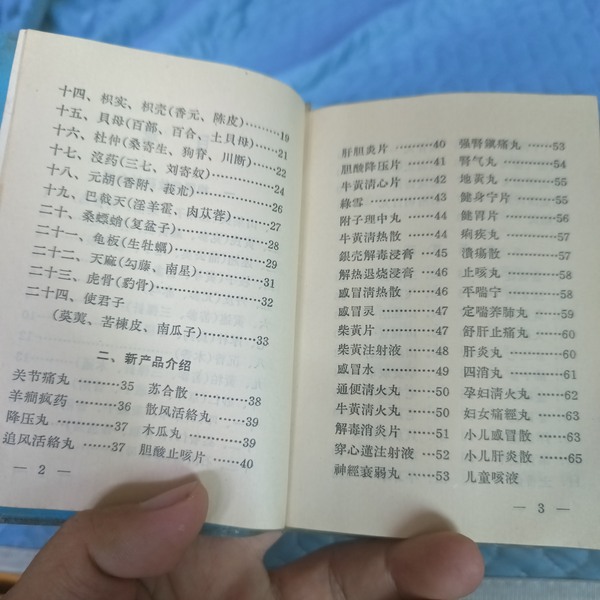 十四、枳实、枳壳(香元、陈皮)………19
十五、貝母(百部、百合、土貝母)………21
十六、杜仲(桑寄生、狗脊、川断)………22
十七、沒药(三七、刘寄奴)………24
十八、元胡(香附、莪朮)………26
十九、巴戟天(淫羊霍、肉苁蓉)………27
二十、桑螵蛸(复盆子)………28
二十一、龟板(生牡蠣)………29
二十二、天麻(勾藤、南星)………31
二十三、虎骨(豹骨)………32
二十四、使君子
(萸荑、苦楝皮、南瓜子)………33
二、新产品介绍
关节痛丸………35 苏合散………38
羊癎疯药………36 散风活絡丸………39
降压丸………37 木瓜丸………39
追风活絡丸………37 胆酸止咳片………40
— 2 —
肝胆炎片………40 强腎鎭痛丸……53
胆酸降压片………41 腎气丸………54
牛黃清心片………42 地黃丸………55
綠雪………43 健身宁片………55
附子理中丸………44 健胃片………56
牛黃清热散………44 痢疾丸………57
銀壳解毒浸膏……45 溃痛散………57
解热退烧浸膏……46 止咳丸………58
感冒清热散………46 平喘宁………58
感冒灵………47 定喘养肺丸……59
柴黃片………47 舒肝止痛丸……60
柴黃注射液………48 肝炎丸………60
感冒水………49 四消丸………61
通便清火丸………50 孕妇清火丸……62
牛黃清火丸………50 妇女痛經丸……63
解毒消炎片………51 小儿感冒散……63
穿心蓮注射液……52 小儿肝炎散……65
神經衰弱丸………53 儿童咳液
— 3 —